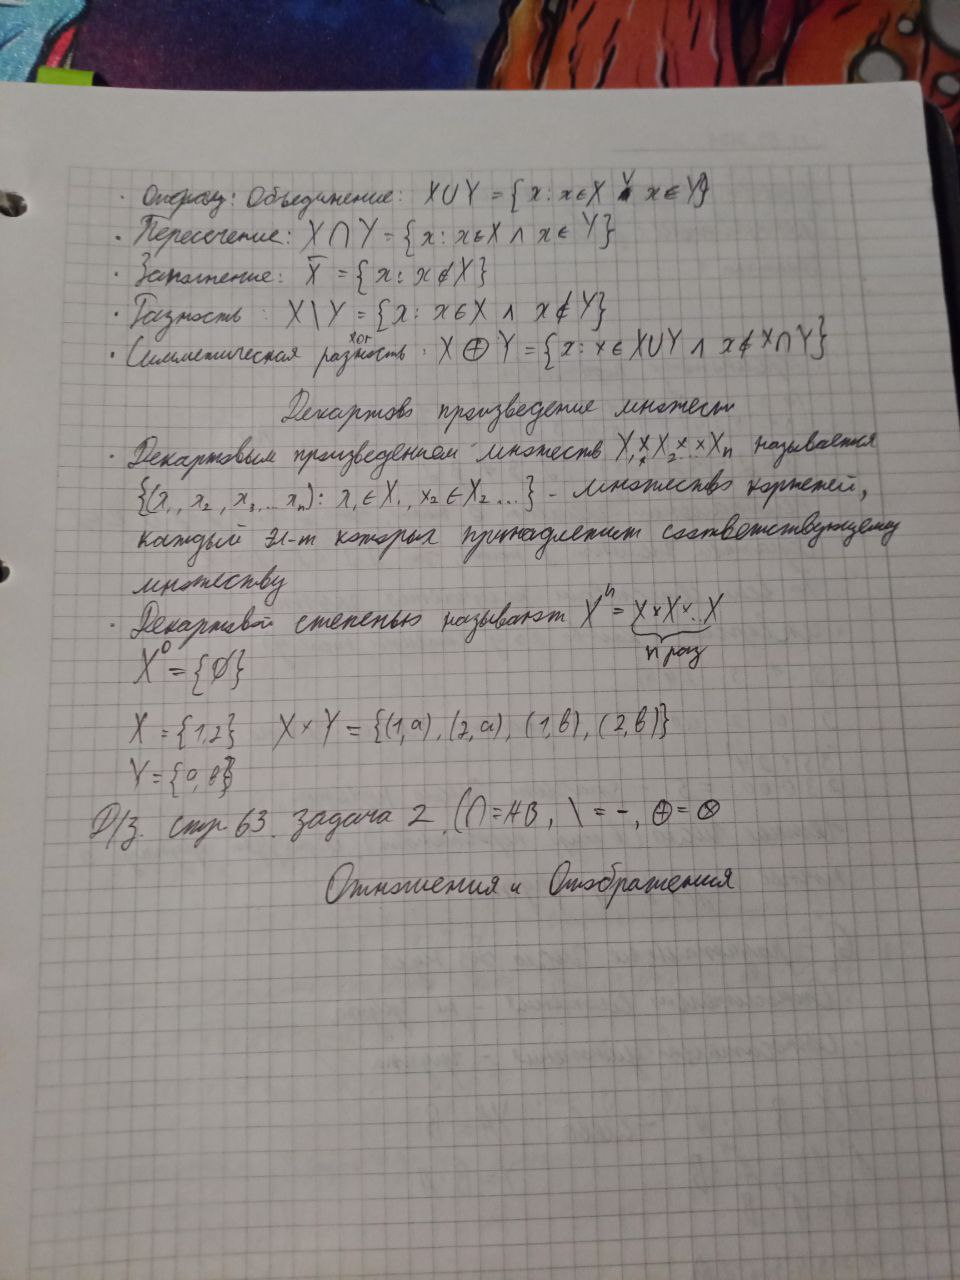 · Операц: Объединение: X∪Y = {x: x∈X ∨ x∈Y}
· Пересечение: X∩Y = {x: x∈X ∧ x∈Y}
· Заполнение: X̅ = {x: x∉X}
· Разность: X\Y = {x: x∈X ∧ x∉Y}
xor
· Симметическая разность: X ⊕ Y = {x: x∈X∪Y ∧ x∉X∩Y}
Декартово произведение множест
· Декартовым произведением множеств X₁×X₂×..×Xₙ называется
{(x₁, x₂, x₃,... xₙ): x₁∈X₁, x₂∈X₂...} - множество кортежей,
каждый эл-т которых принадлежит соответствующему
множеству
· Декартовой степенью называют Xⁿ = X×X×..X
n раз
X⁰ = {∅}
X = {1,2} X×Y = {(1,a), (2,a), (1,b), (2,b)}
Y = {a,b}
Д/з. стр 63. Задача 2. (∩=AB, \ = -, ⊕=⊗
Отношения и Отображения